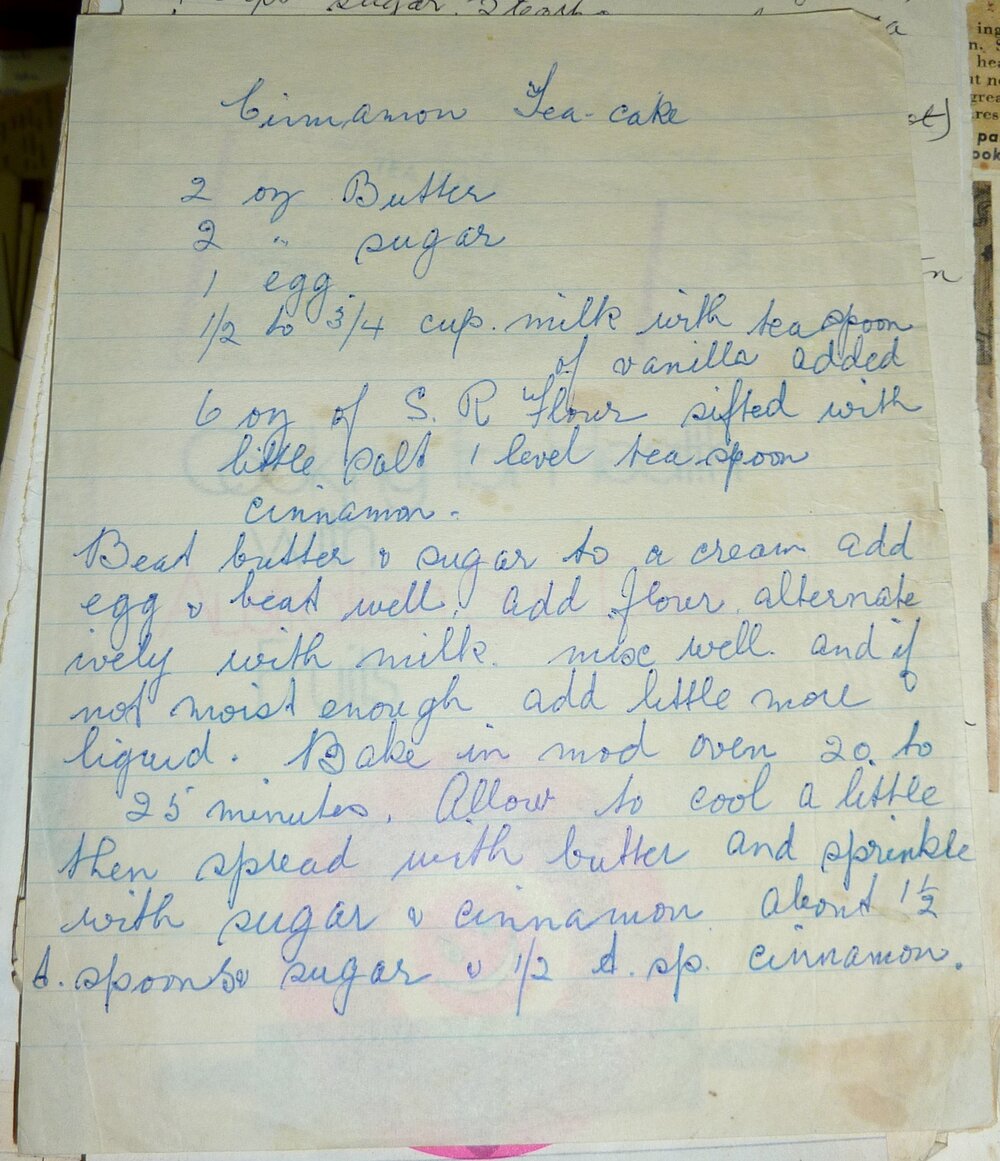 Cinnamon Tea-cake
2 oz Butter
2 " sugar
1 egg.
1/2 to 3/4 cup. milk with teaspoon
of vanilla added
6 oz of S. R Flour sifted with
little salt 1 level teaspoon
cinnamon.
Beat butter & sugar to a cream add
egg & beat well, add flour alternate
ively with milk. mix well. and if
not moist enough add little more
liquid. Bake in mod oven 20 to
25 minutes. Allow to cool a little
then spread with butter and sprinkle
with sugar & cinnamon about 1 1/2
t. spoons sugar & 1/2 t. sp. cinnamon.